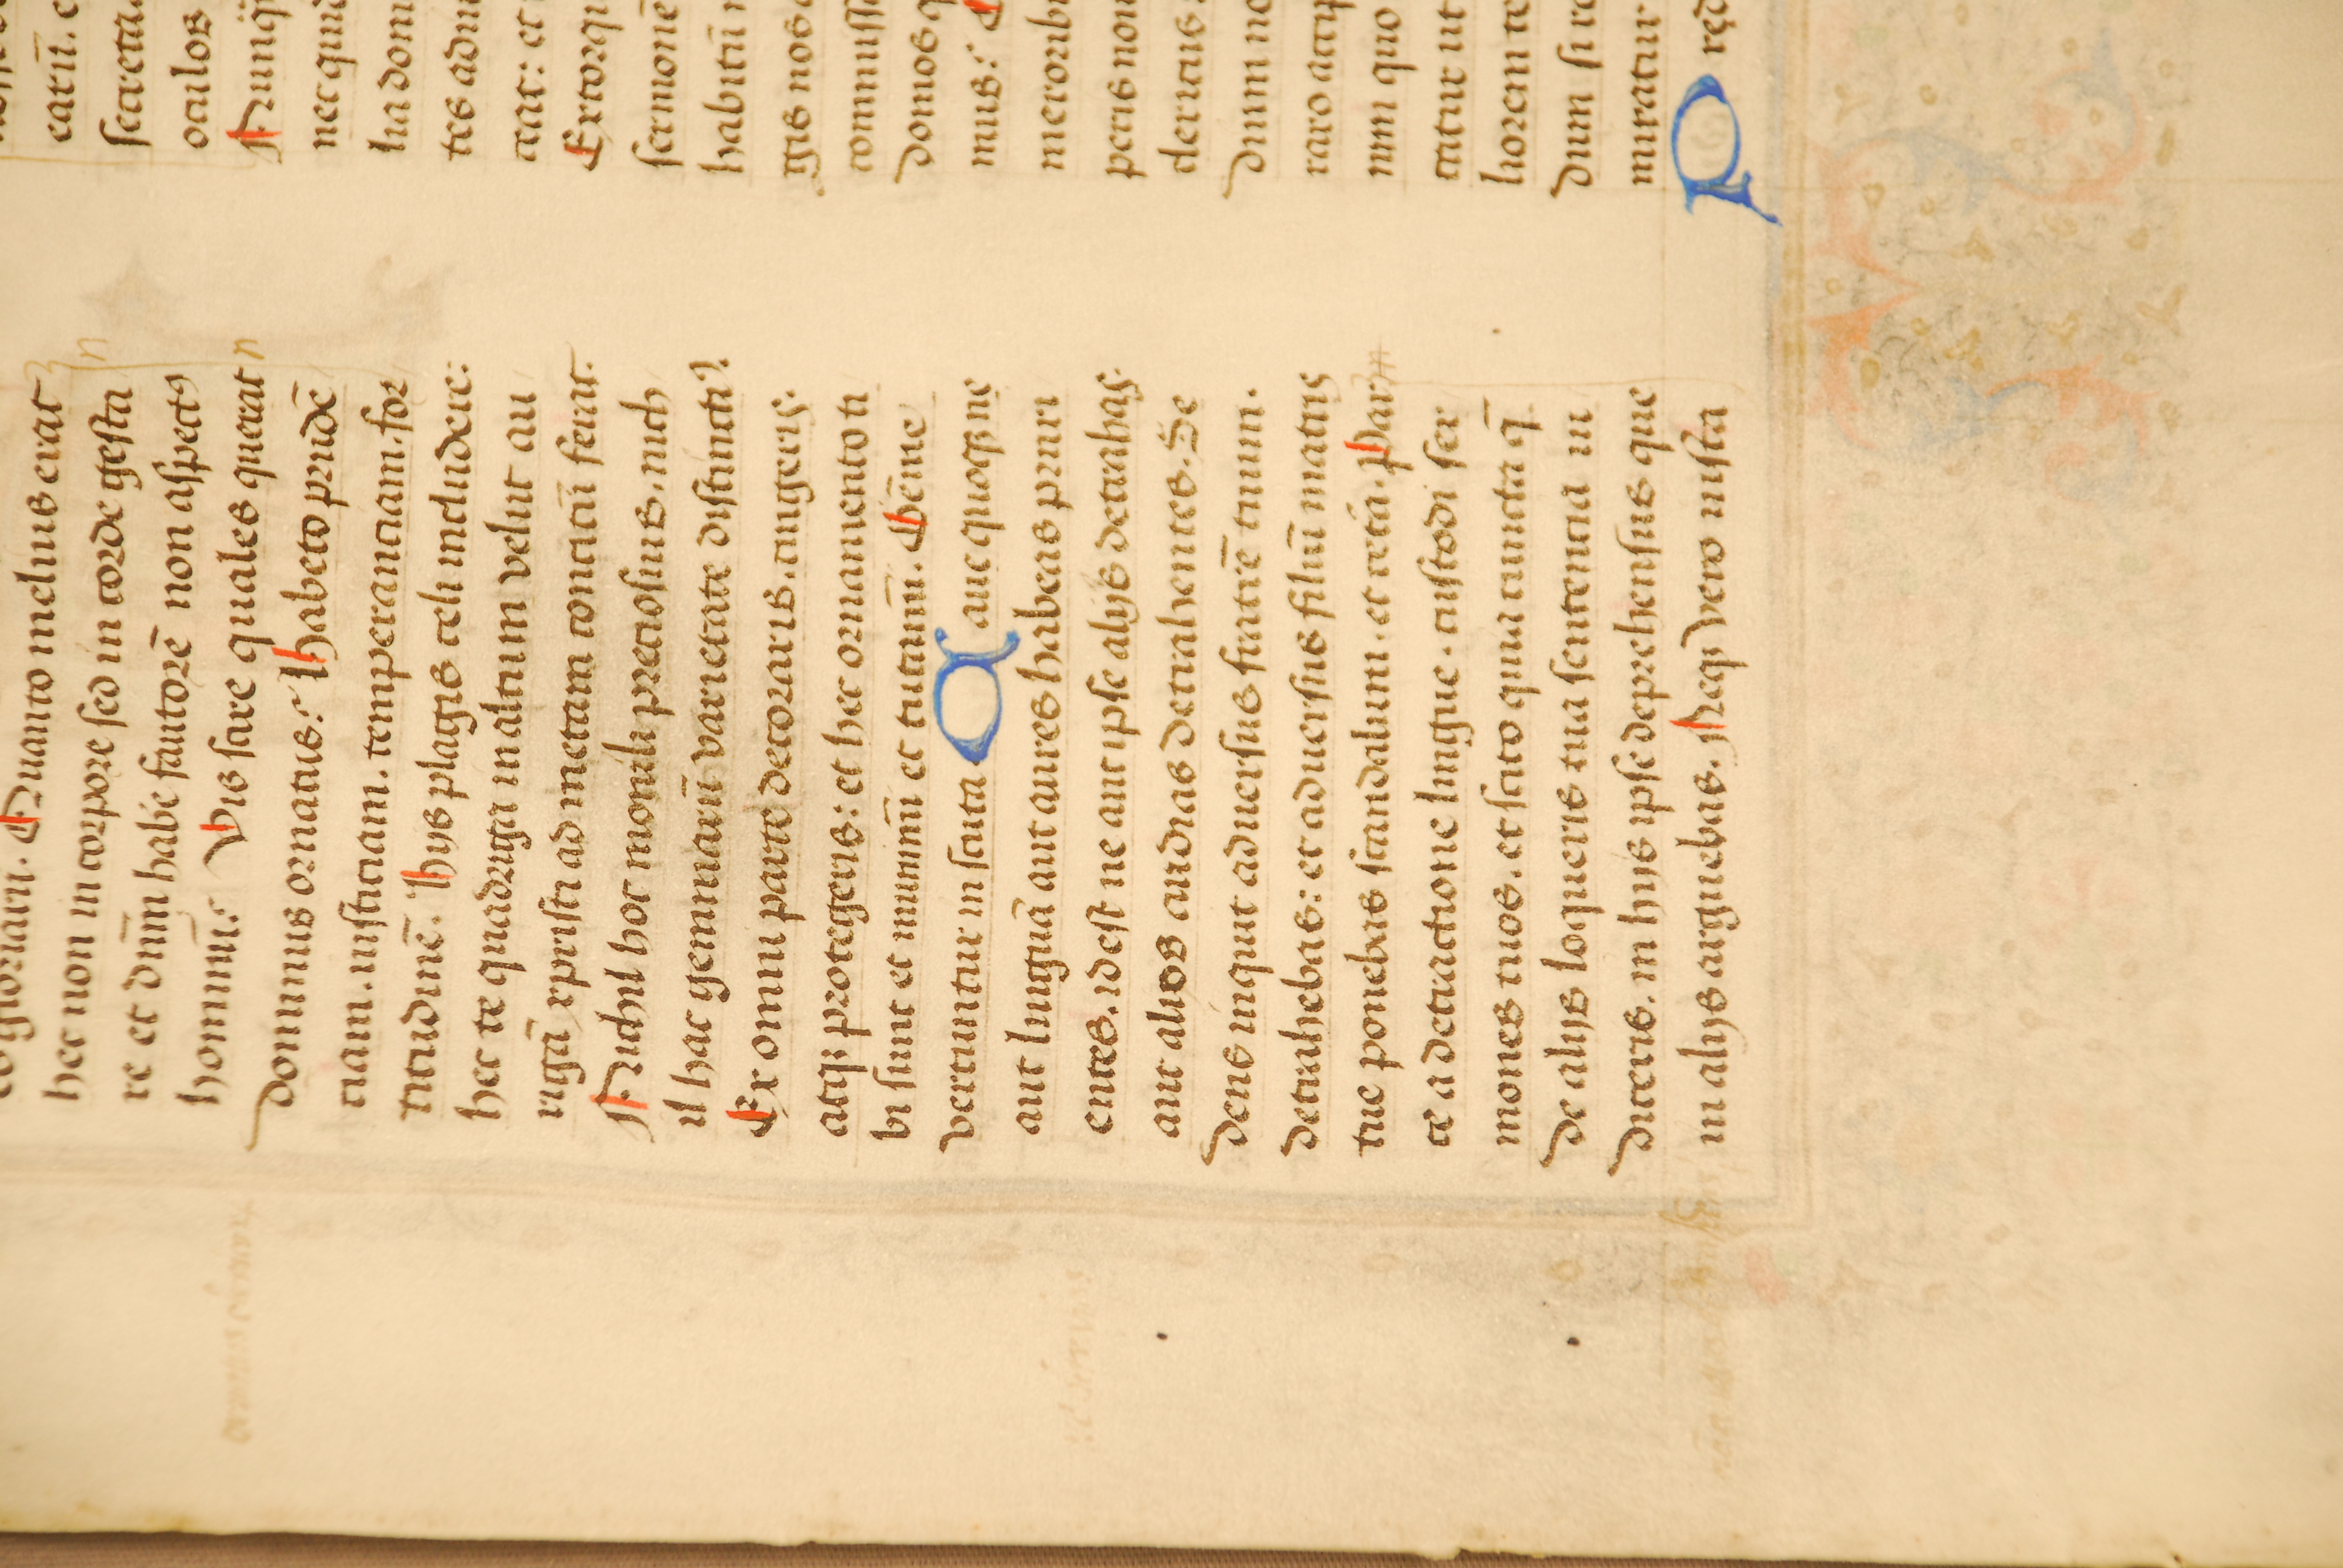 Quanto melius erat
hec non in corpore sed in corde gesta
re et dnm̄ habe fautorē non aspectꝰ
hominū? Vis scire quales querat
dominus ornatus? Habeto prudē
tiam. iusticiam. temperanciam. for
titudinē. Hijs plagis celi includere:
hec te quadriga in altum velut au
rigā xpristi ad metam concitū ferat.
Nichil hoc monili preciosius. nich
il hac gemmarū varietate distincti?
Ex omni parte decoraris. cingeris.
atqꝫ protegeris: et hec ornamento ti
bi sunt et munimī et tutamī. Gēme
vertuntur in scuta Caue quoqꝫ ne
aut linguā aut aures habeas pruri
entes. idest ne aut ipse alijs detrahas.
aut alios audias detrahentes. Se
dens inquit aduersus fratrē tuum.
detrahebas: et aduersus filiū matris
tue ponebas scandalum. et cetᵃ. Par
ce a detractione lingue. custodi ser
mones tuos. et scito quia cuncta q̄
de alijs loqueris tua sentencia iu
diceris. in hijs ipse deprehensus que
in alijs arguebas. Neqꝫ vero iusta
earū. e
secreta.
oculos
nec quid
lia dom
tes adm
ceat: et
Extorqu
sermonē
habitū
gis nos
commiss
domos q
mus?
meroribꝰ
peris non
deritis
dium no
raro accip
nim quo
catur ut
liorem te
dum si ro
miratur
P red